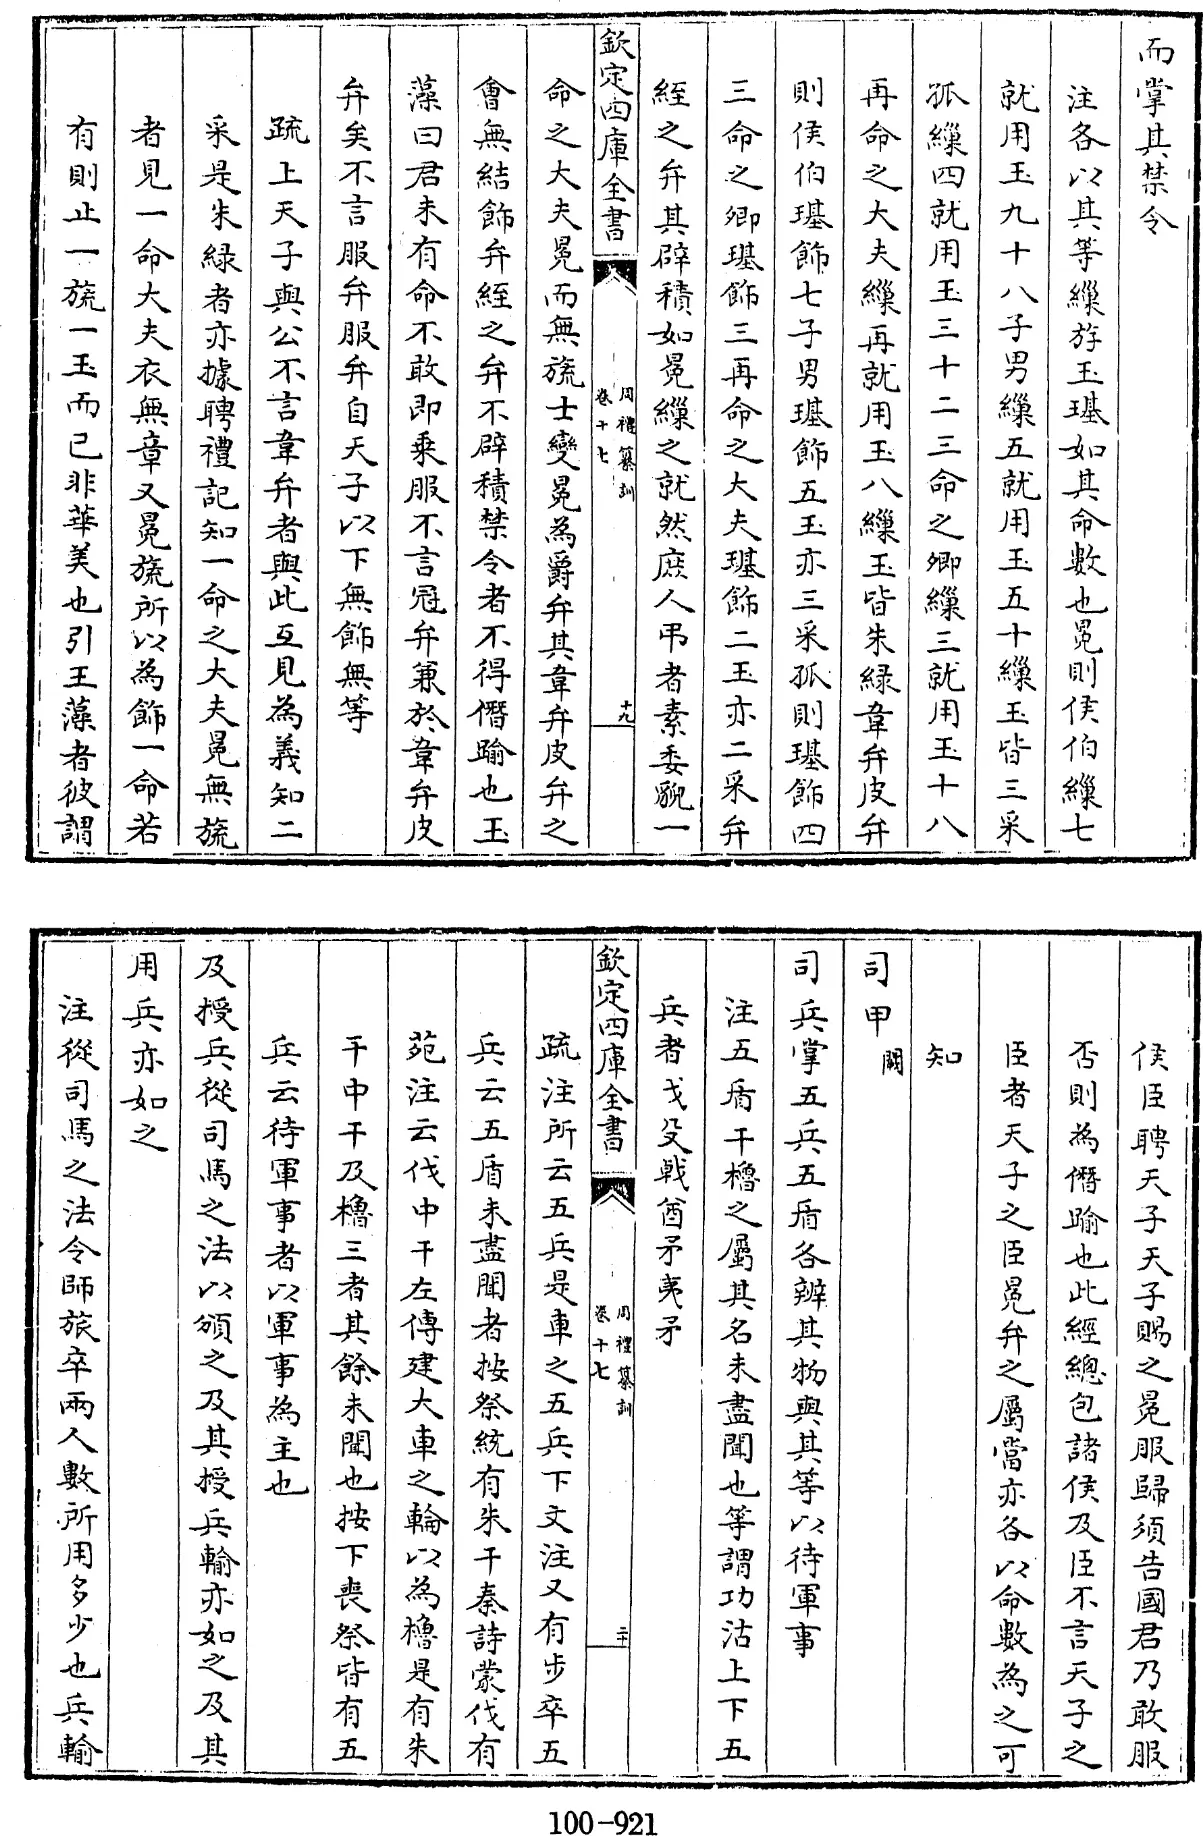 而掌其禁令
注各以其等繅斿玉璂如其命數也冕則侯伯繅七
就用玉九十八子男繅五就用玉五十繅玉皆三采
孤繅四就用玉三十二三命之卿繅三就用玉十八
再命之大夫繅再就用玉八繅玉皆朱緑韋弁皮弁
則侯伯璂飾七子男璂飾五玉亦三采孤則璂飾四
三命之卿璂飾三再命之大夫璂飾二玉亦二采弁
絰之弁其辟積如冕繅之就然庶人弔者素委貌一
欽定四庫全書
周禮纂訓
卷十七
十九
命之大夫冕而無旒士變冕為爵弁其韋弁皮弁之
會無結飾弁絰之弁不辟積禁令者不得僭踰也玉
藻曰君未有命不敢即乗服不言冠弁兼於韋弁皮
弁矣不言服弁服弁自天子以下無飾無等
疏上天子與公不言韋弁者與此互見為義知二
采是朱緑者亦據聘禮記知一命之大夫冕無旒
者見一命大夫衣無章又冕旒所以為飾一命若
有則止一旒一玉而已非華美也引王藻者彼謂
侯臣聘天子天子賜之冕服歸須告國君乃敢服
否則為僭踰也此經總包諸侯及臣不言天子之
臣者天子之臣冕弁之屬當亦各以命數為之可
知
司甲闕
司兵掌五兵五盾各辨其物與其等以待軍事
注五盾干櫓之屬其名未盡聞也等謂功沽上下五
兵者戈殳戟酋矛夷矛
欽定四庫全書
周禮纂訓
卷十七
二十
疏注所云五兵是車之五兵下文注又有步卒五
兵云五盾未盡聞者按祭統有朱干秦詩蒙伐有
苑注云伐中干左傳建大車之輪以為櫓是有朱
干中干及櫓三者其餘未聞也按下喪祭皆有五
兵云待軍事者以軍事為主也
及授兵從司馬之法以頒之及其授兵輸亦如之及其
用兵亦如之
注從司馬之法令師旅卒兩人數所用多少也兵輸
100-921